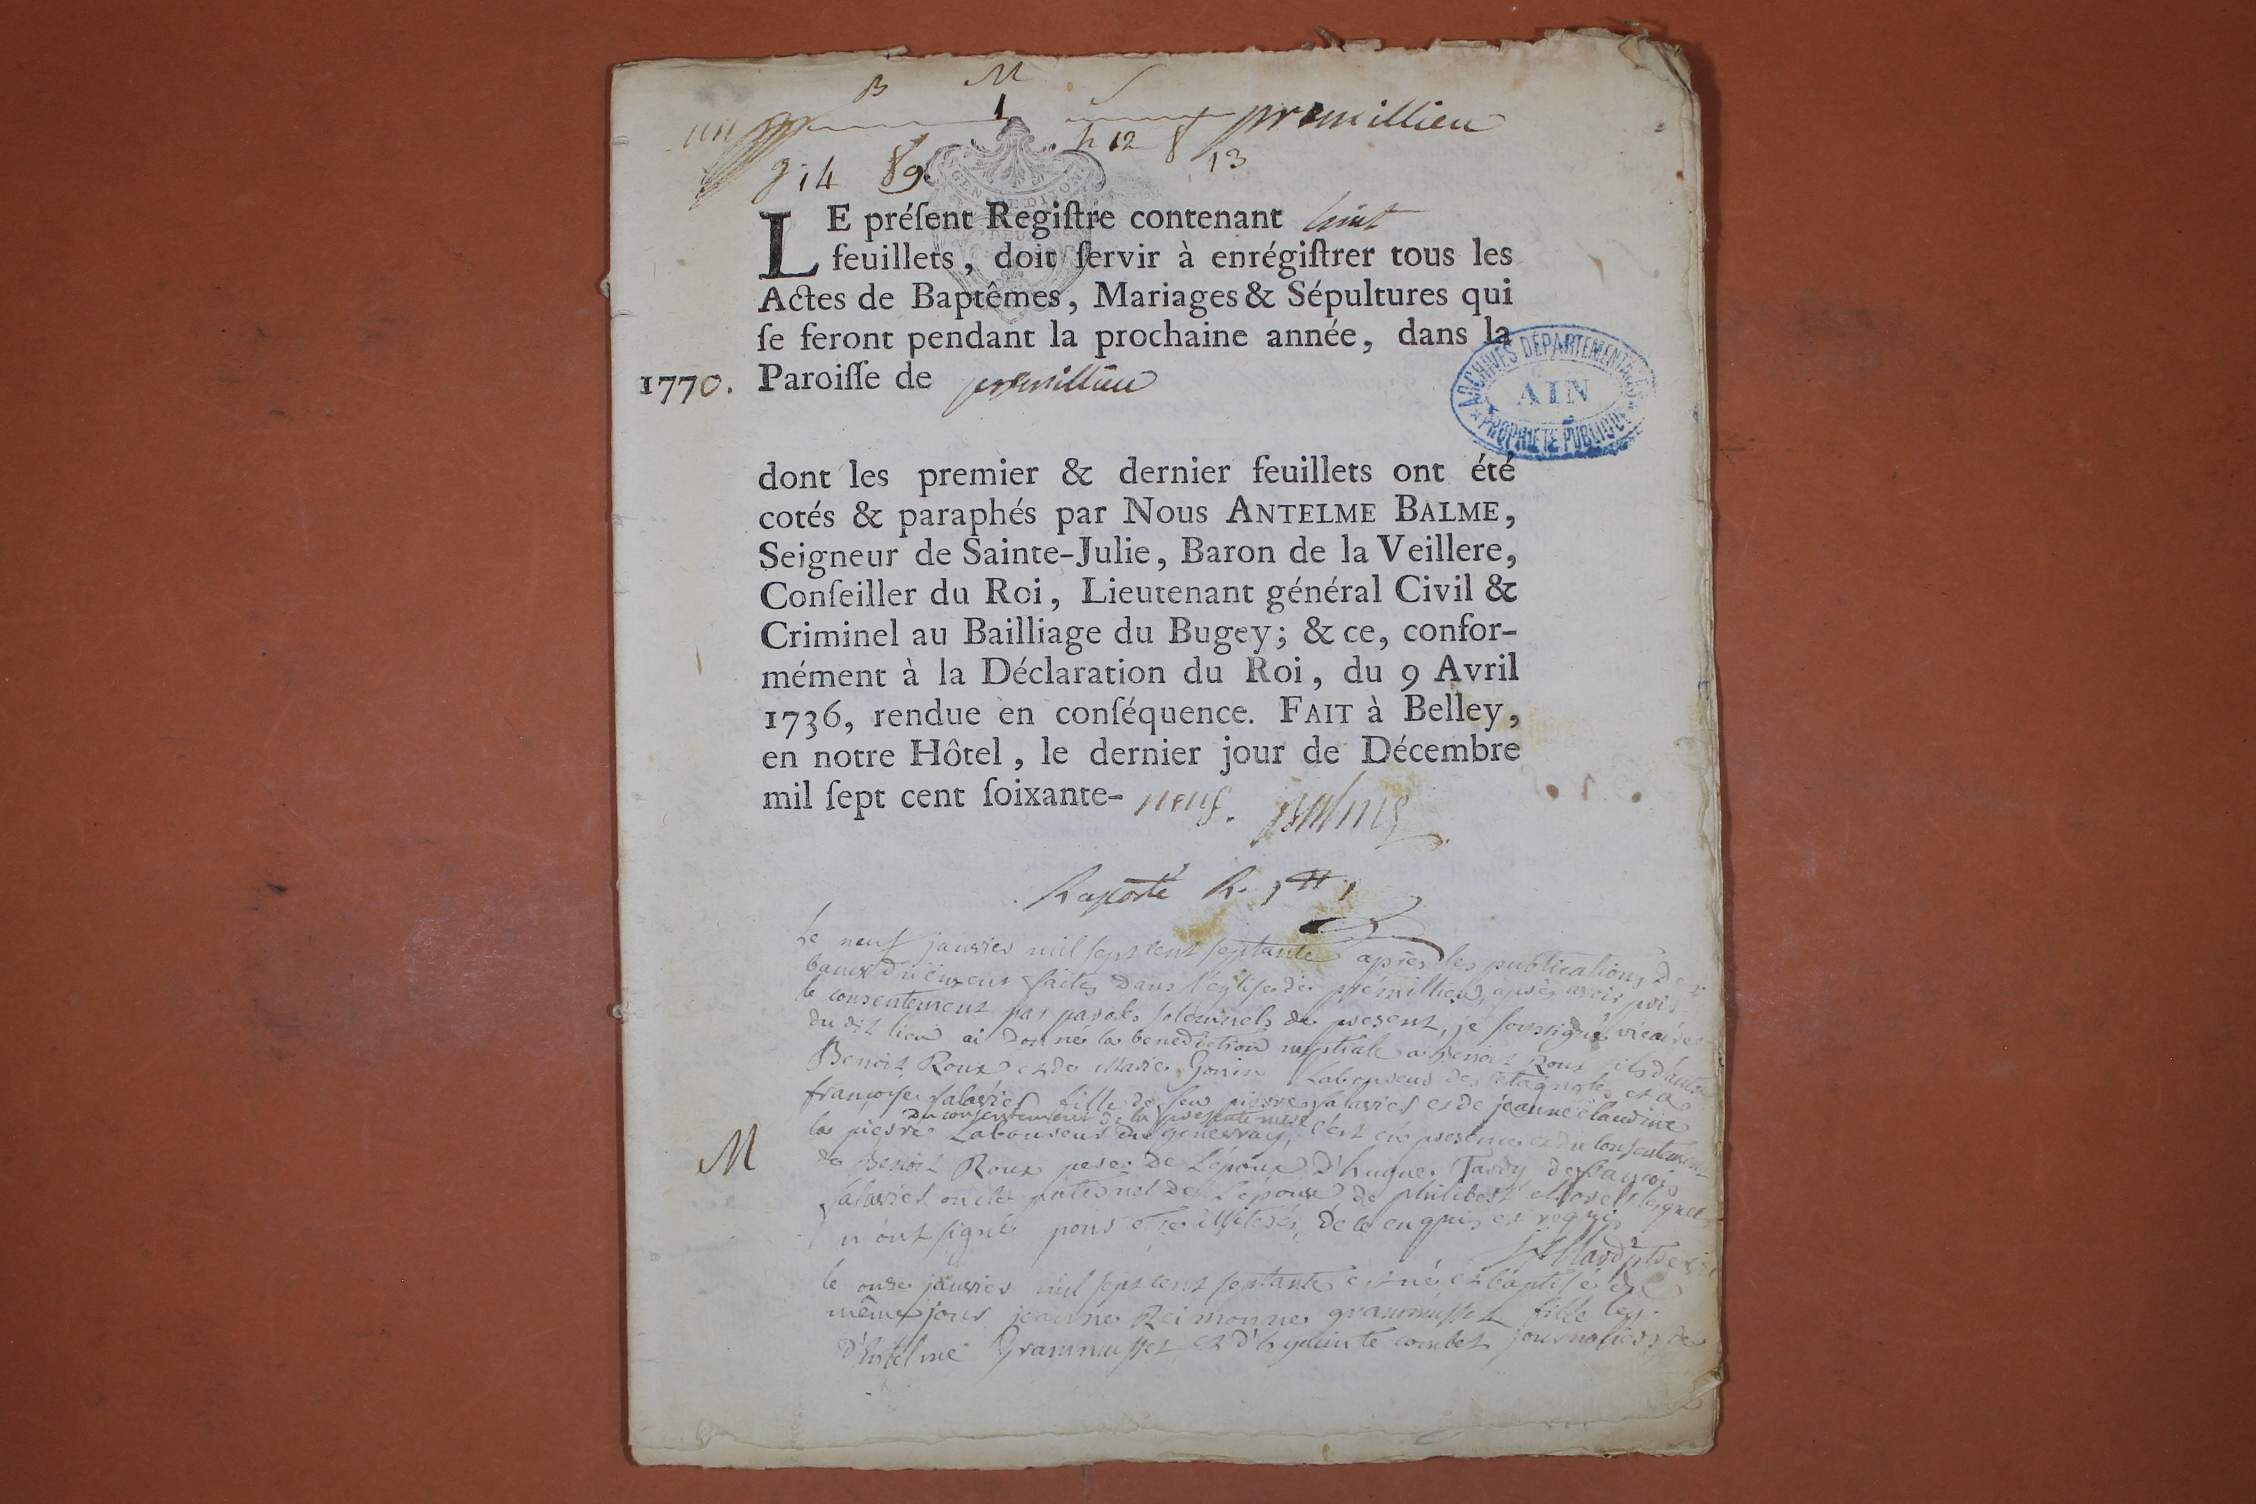 B M S
un 1 premillieu
g 14 89 h 12 8 13
GEN DITION
LE préſent Regiſtre contenant huit
feuillets, doit ſervir à enrégiſtrer tous les
Actes de Baptêmes, Mariages & Sépultures qui
ſe feront pendant la prochaine année, dans la
1770. Paroiſſe de premillieu
ARCHIVES DÉPARTEMENTALES
AIN
PROPRIÉTÉ PUBLIQUE
dont les premier & dernier feuillets ont été
cotés & paraphés par Nous ANTELME BALME,
Seigneur de Sainte-Julie, Baron de la Veillere,
Conſeiller du Roi, Lieutenant général Civil &
Criminel au Bailliage du Bugey; & ce, confor-
mément à la Déclaration du Roi, du 9 Avril
1736, rendue en conſéquence. FAIT à Belley,
en notre Hôtel, le dernier jour de Décembre
mil ſept cent ſoixante- neuf. Balme
Raporté R. 1
Le neuf janvier mil sept cent septante après les publications des
bans duement faites dans l'église de prémillieu, après avoir pris
le consentement par paroles solemnels de present, je soussigné vicaire
du dit lieu ai donné la benediction nuptiale a Benoit Roux fils d'autre
Benoit Roux et de Marie Gonin Laboureur des et a
françoise salavies fille de feu pierre salavies et de jeanne claudine
du consentement de la presente mere
la pierre Laboureur du genevray, c'est en presence et du consentement
M de Benoit Roux pere de l'époux d'hugue Tardy de françois
salavies oncle paternel de l'épouse de philibert lesquels
n'ont signé pour etre illiterés, de ce enquis et requis
le onze janvier mil sept cent septante est née et baptisée le
même jour jeanne Reimonne grammusset fille leg.
d'Antelme Grammusset et d'hyacinte combet journaliers de